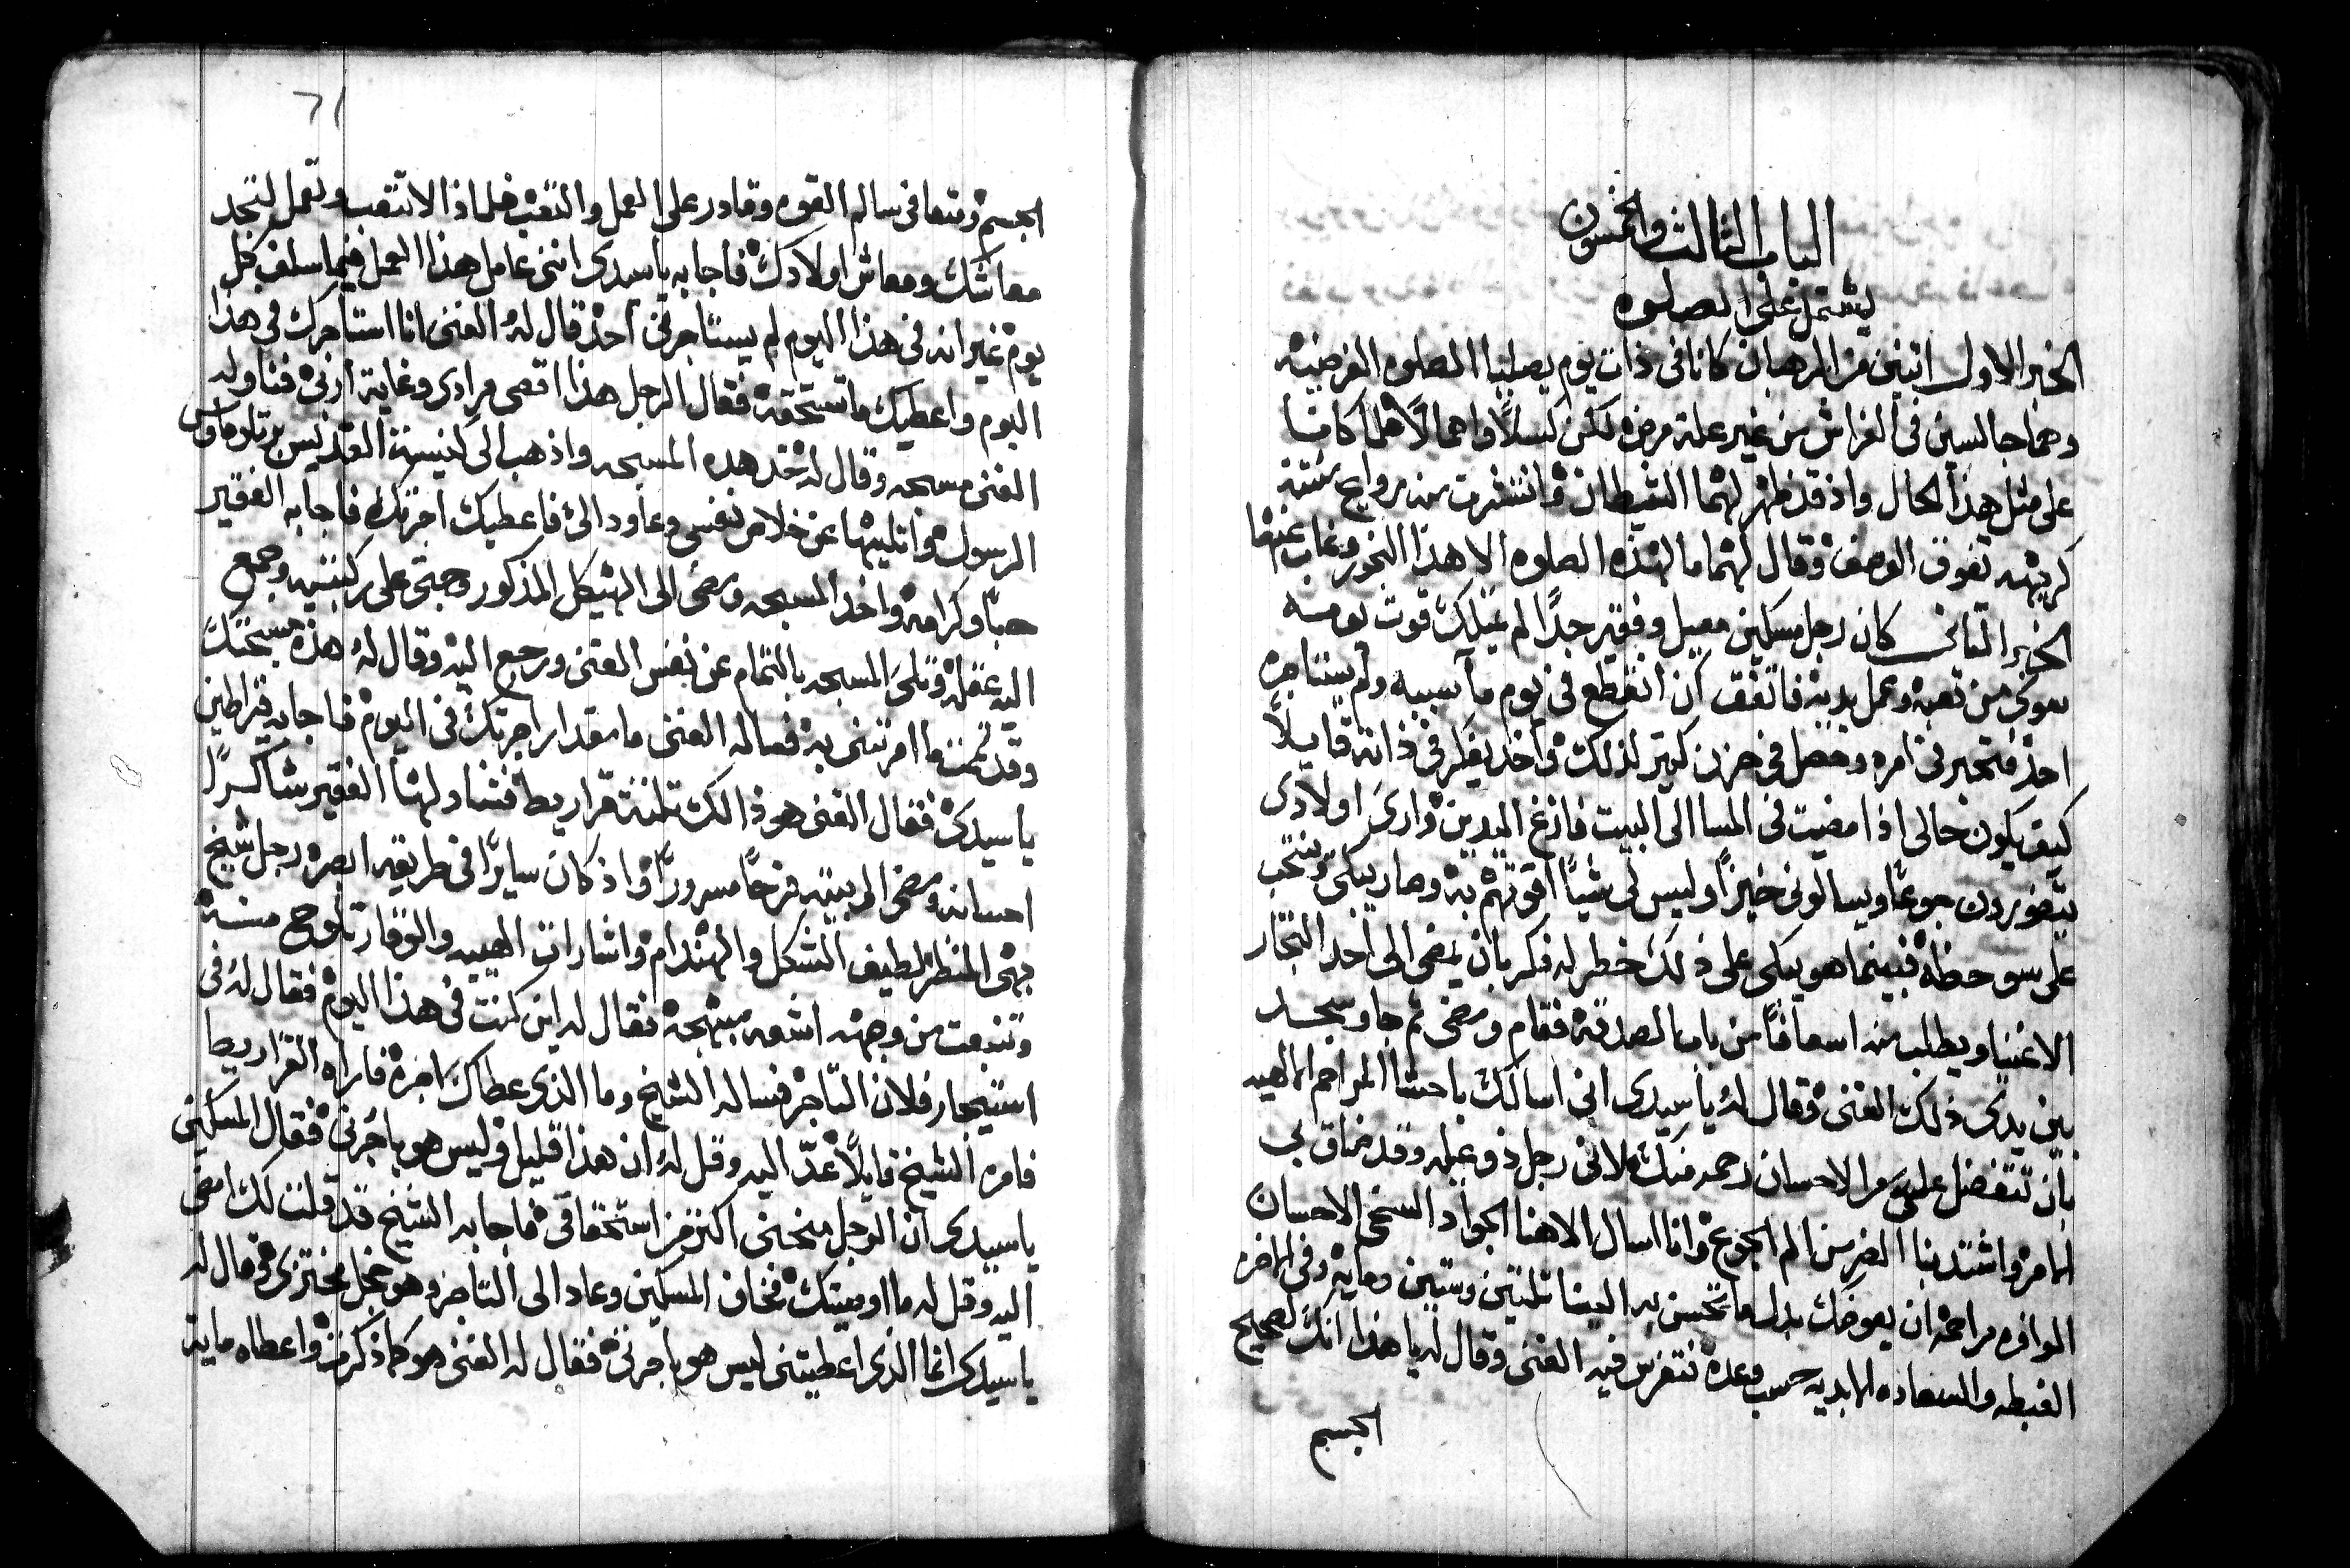 الباب الثالث والخمسون
يشتمل على الصلوه
الخبر الاول اتنين من الرهبان كانا فى ذات يوم يصليا الصلوه الفرضيه
وهما جالسين فى الفراش من غير علة مرض لكن كسلًا واهمالًا فلما كانا
على مثل هذا الحال واذ قد ظهر لهما الشيطان وانتشرت منه روايح نتنة
كريهه تفوق الوصف وقال لهما ما لهذه الصلوه الا هذا البخور وغاب عنهما
الخبر الثانى كان رجل مسكين معيل وفقير جدًا لم يملك قوت يومه
سوى من تعبه وعمل يديه فاتفق ان انقطع فى يوم ما سببه ولم يستاجره
احد فتحير فى امره وحصل فى حزن كبير لذلك واخد يفكر فى ذاته قايلًا
كيف يكون حالى اذا مضيت فى المسا الى البيت فازغ اليدين وارى اولادى
يتضورون جوعًا ويسالونى خبزًا وليس لى شيًا اقوتهم به وصار يبكى وينتحب
على سو حظه فبينما هو يبكى على ذلك خطر له فكر بان يمضى الى احد التجار
الاغنيا ويطلب منه اسعافًا من باب الصدقه فقام ومضى ثم جا وسجد
بين يدى ذلك الغنى وقال له يا سيدى انى اسالك باحشا المراحم الالهيه
بان تتفضل على بالاحسان رحمه منك لانى رجل ذو عيله وقد ضاق بى
الامر واشتد بنا الضر من الم الجوع وانا اسال الاهنا الجواد السخى الاحسان
الوافره مراحمه ان يعوضك بدل ما تحسن به الينا تلتين وستين ومايه وفى الاخره
الغبطه والسعاده الابديه حسب وعده فتفرس فيه الغنى وقال له يا هذا انك لصحيح
الجسم
الجسم ومتعافى سالم القوه وقادر على العمل والتعب فلماذا لا تتعب وتعمل لتجد
معاشك ومعاش اولادك فاجابه يا سيدى اننى عامل هذا العمل فيما سلف كل
يوم غير انه فى هذا اليوم لم يستاجرنى احد قال له الغنى انا استاجرك فى هذا
اليوم واعطيك ما تستحقه فقال الرجل هذا اقصى مرادى وغاية اربى فناوله
الغنى مسبحه وقال له خد هده المسبحه واذهب الى كنيسة القديس برتلوماوس
الرسول واتليها عن خلاص نفسى وعاود الىّ فاعطيك اجرتك فاجابه الفقير
حبًا وكرامه واخد المسبحه ومضى الى الهيكل المذكور وجتى على ركبتيه وجمع
اليه عقله وتلى المسبحه بالتمام عن نفس الغنى ورجع اليه وقال له هذه مسبحتك
وقد تممت ما امرتنى به فساله الغنى ما مقدار اجرتك فى اليوم فاجابه قيراطين
يا سيدى فقال الغنى هوذا لك تلتة قراريط فتناولها الفقير شاكرًا
احسانه ومضى الى بيته فرحًا مسرورًا واذ كان سايرًا فى طريقه ابصره رجل شيخ
بهى المنظر لطيف الشكل والهندام واشارات الهيبه والوقار تلوح منه
وتنبعت من وجهه اشعه مبتهجه فقال له اين كنت فى هذا اليوم فقال له فى
استيجار فلان التاجر فساله الشيخ وما الذى عطاك اجره فاراه القراريط
فامره الشيخ قايلًا عدّ اليه وقل له ان هذا قليل وليس هو باجرتى فقال المسكين
يا سيدى ان الرجل منحنى اكتر من استحقاقى فاجابه الشيخ قد قلت لك امضى
اليه وقل له ما اوصيتك فخاف المسكين وعاد الى التاجر وهو خجل محترى وقال له
يا سيدى انما الذى اعطيتنى ليس هو باجرتى فقال له الغنى هو كما ذكرت واعطاه ماية